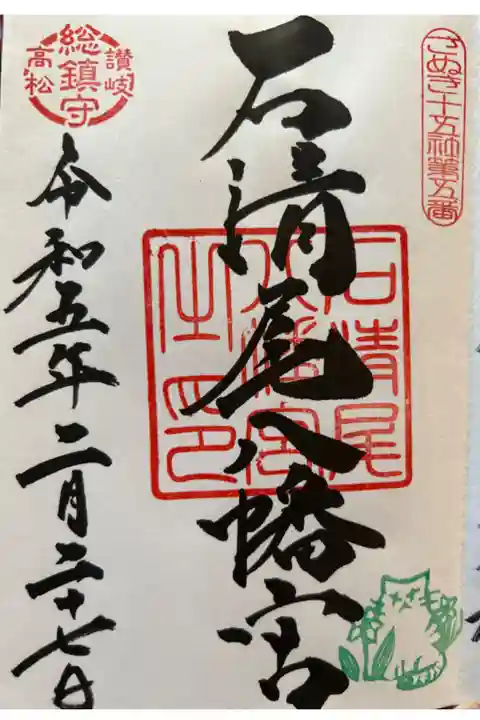 さぬき十五社第五番
石清尾八幡宮
石清尾
八幡宮
之印
讃岐
総鎮守
高松
令和五年二月二十七日